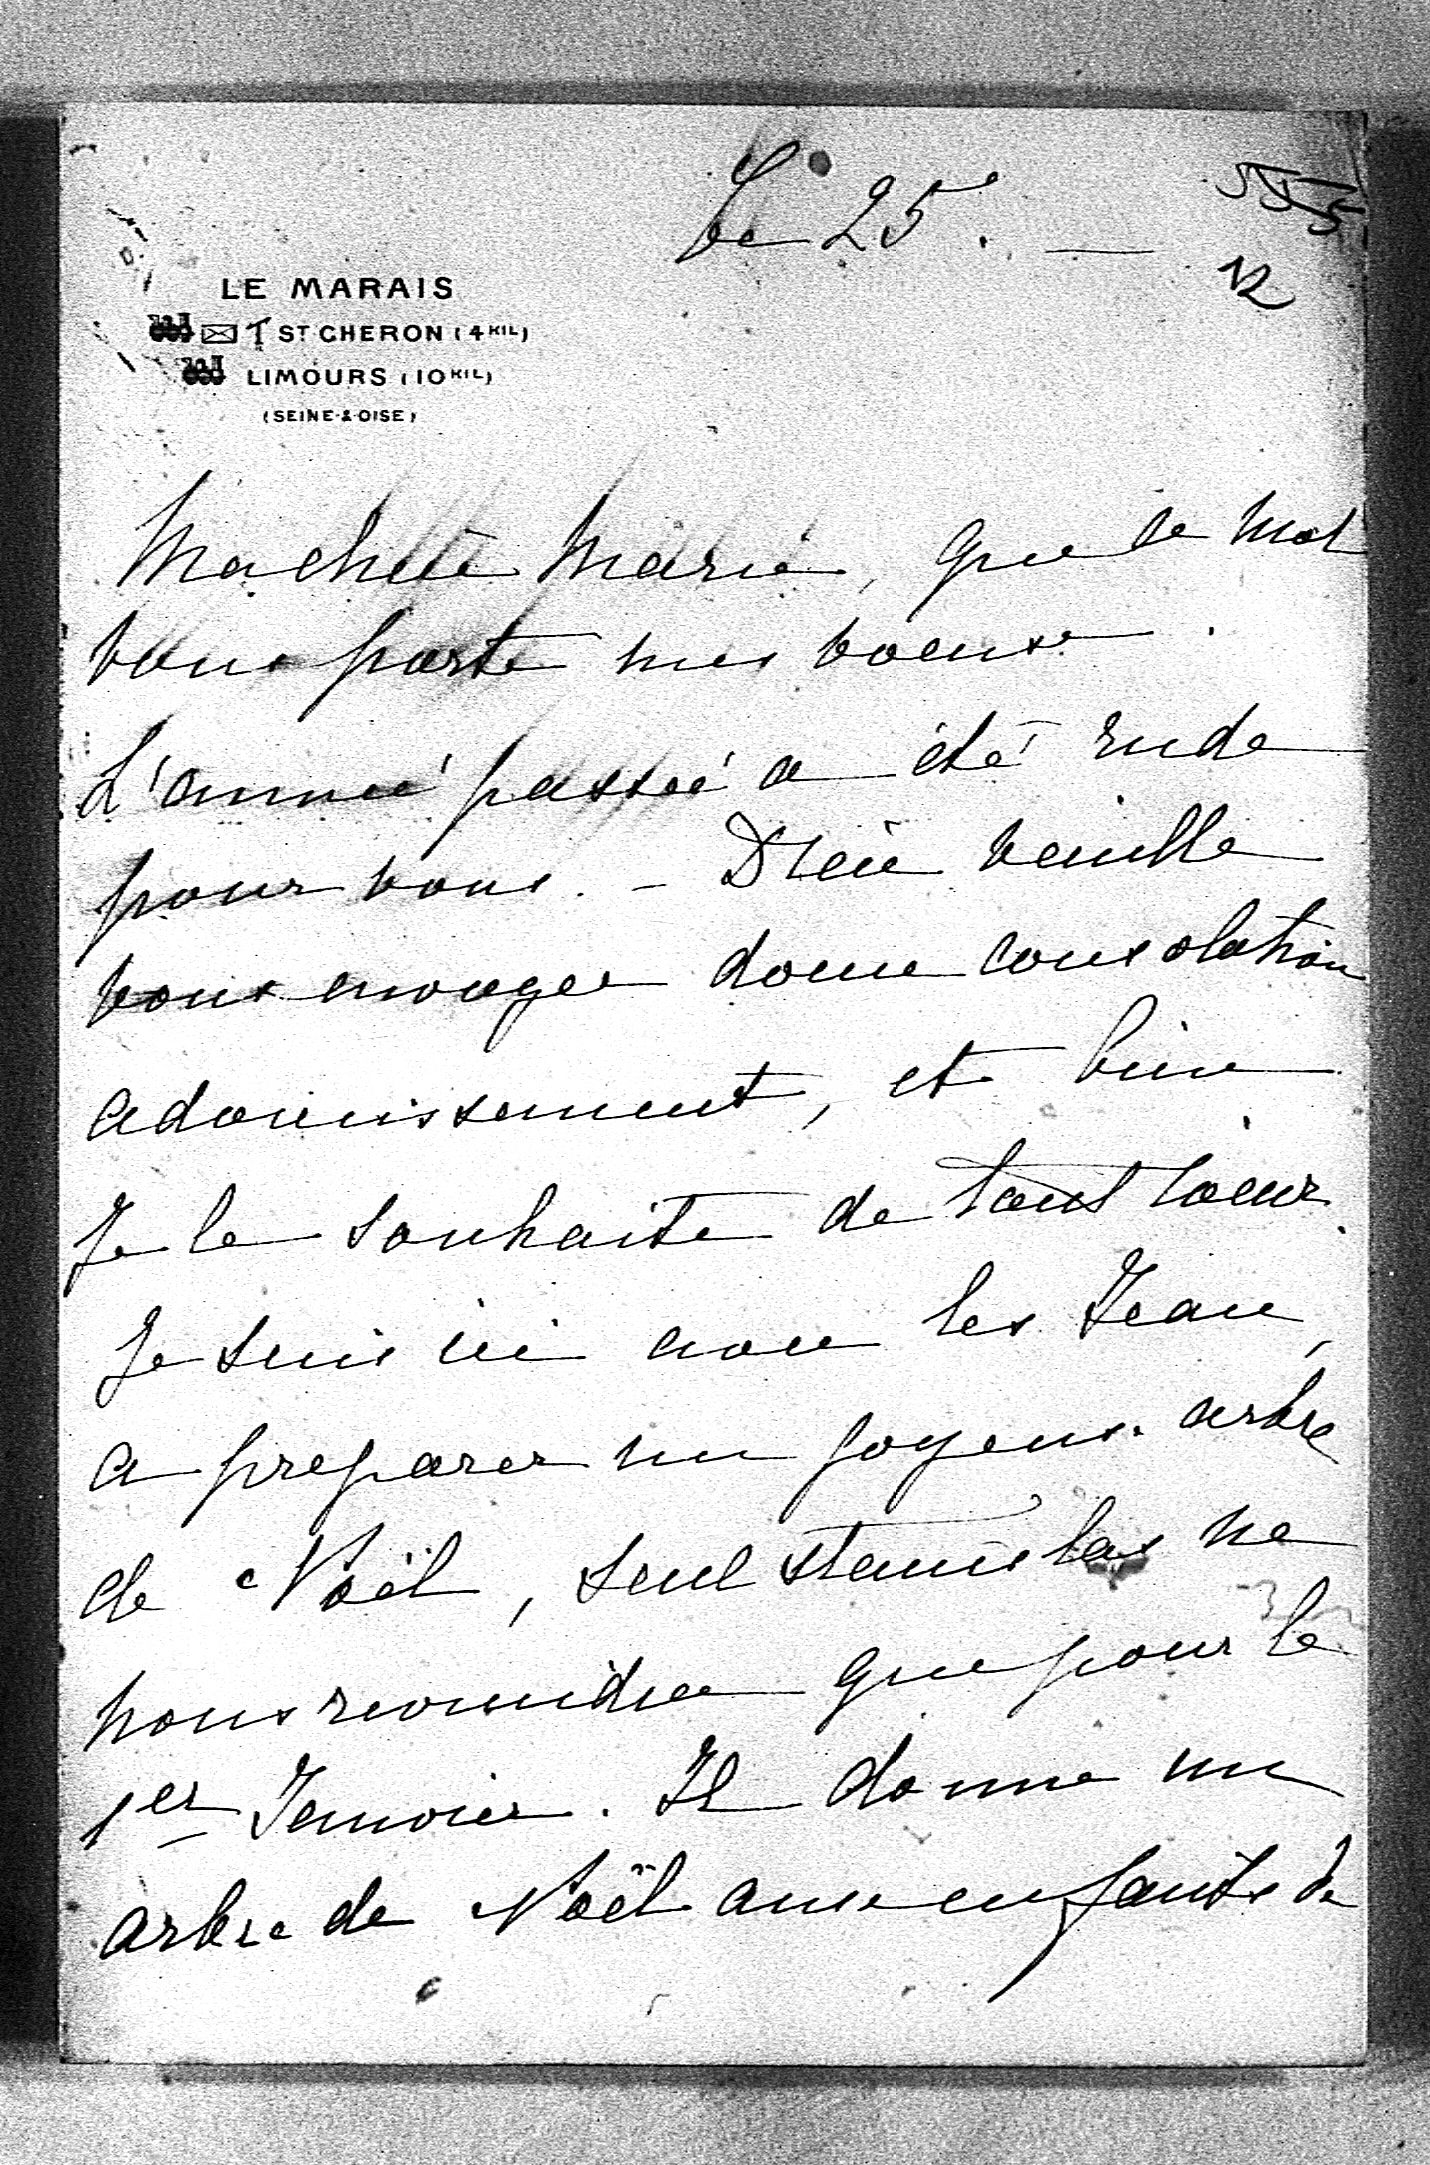 Ce 25.
555
12
LE MARAIS
ST CHERON (4 KIL)
LIMOURS (10 KIL)
(SEINE-&-OISE)
Ma chère Marie, que ce mot
vous porte mes voeux.
L'année passée a été rude
pour vous. - Dieu veuille
vous envoyer douce consolation
adoucissement, et bien
Je le souhaite de tout coeur.
Je suis ici avec les Jean,
a preparer un joyeux arbre
de Noël, seul Stanislas ne
nous reviendra que pour le
1er Janvier. Il donne un
arbre de Noël aux enfants de